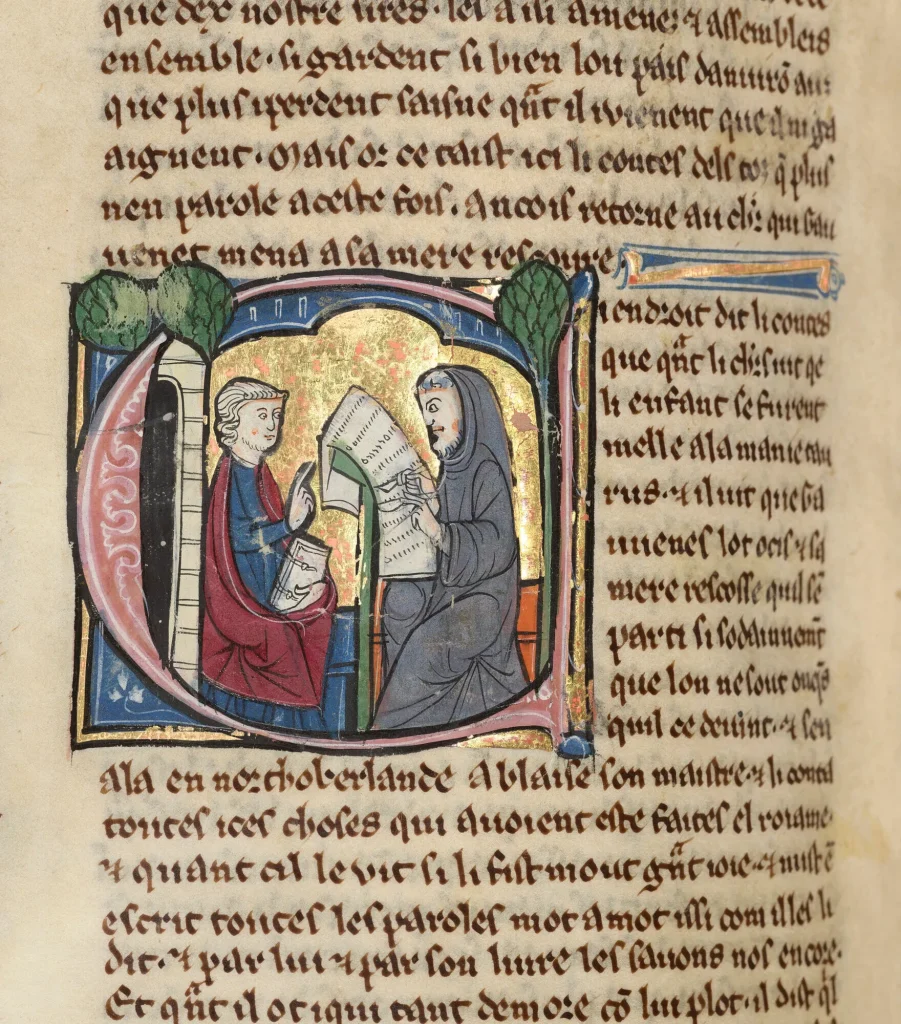 que dex nostre sires les a isi amenez ⁊ assembleis
ensemble · si gardent si bien lou païs danuirõ aus
que plus i perdent saisne q̃nt il i vienent que il ni ga
aignent · Mais or ce taist ici li contes dels toz q̃ plus
nen parole a ceste fois · ancois retorne au chr̃ qui Gau
uenet mena a sa mere rescoure
i endroit dit li contes
que q̃nt li chr̃s uit qe
li enfant se furent
melle a la maniee
rus · ⁊ il uit que Ga
uuenes lot ocis ⁊ sa
mere rescosse quil sẽ
parti si sodainnemt
que lon ne sout onq̃s
quil ce deuint · ⁊ sen
ala en norchoberlande a blaise son maistre · ⁊ li conta
toutes ices choses qui auoient este faites el roiame ·
⁊ quant cil le vit si li fist mout g̃nt ioie · ⁊ mist ẽ
escrit toutes les paroles mot a mot issi com il les li
dit · ⁊ par lui ⁊ par son liure les sauons nos encore ·
Et q̃nt il ot iqui tant demore cõ lui plot · il dist q̃l